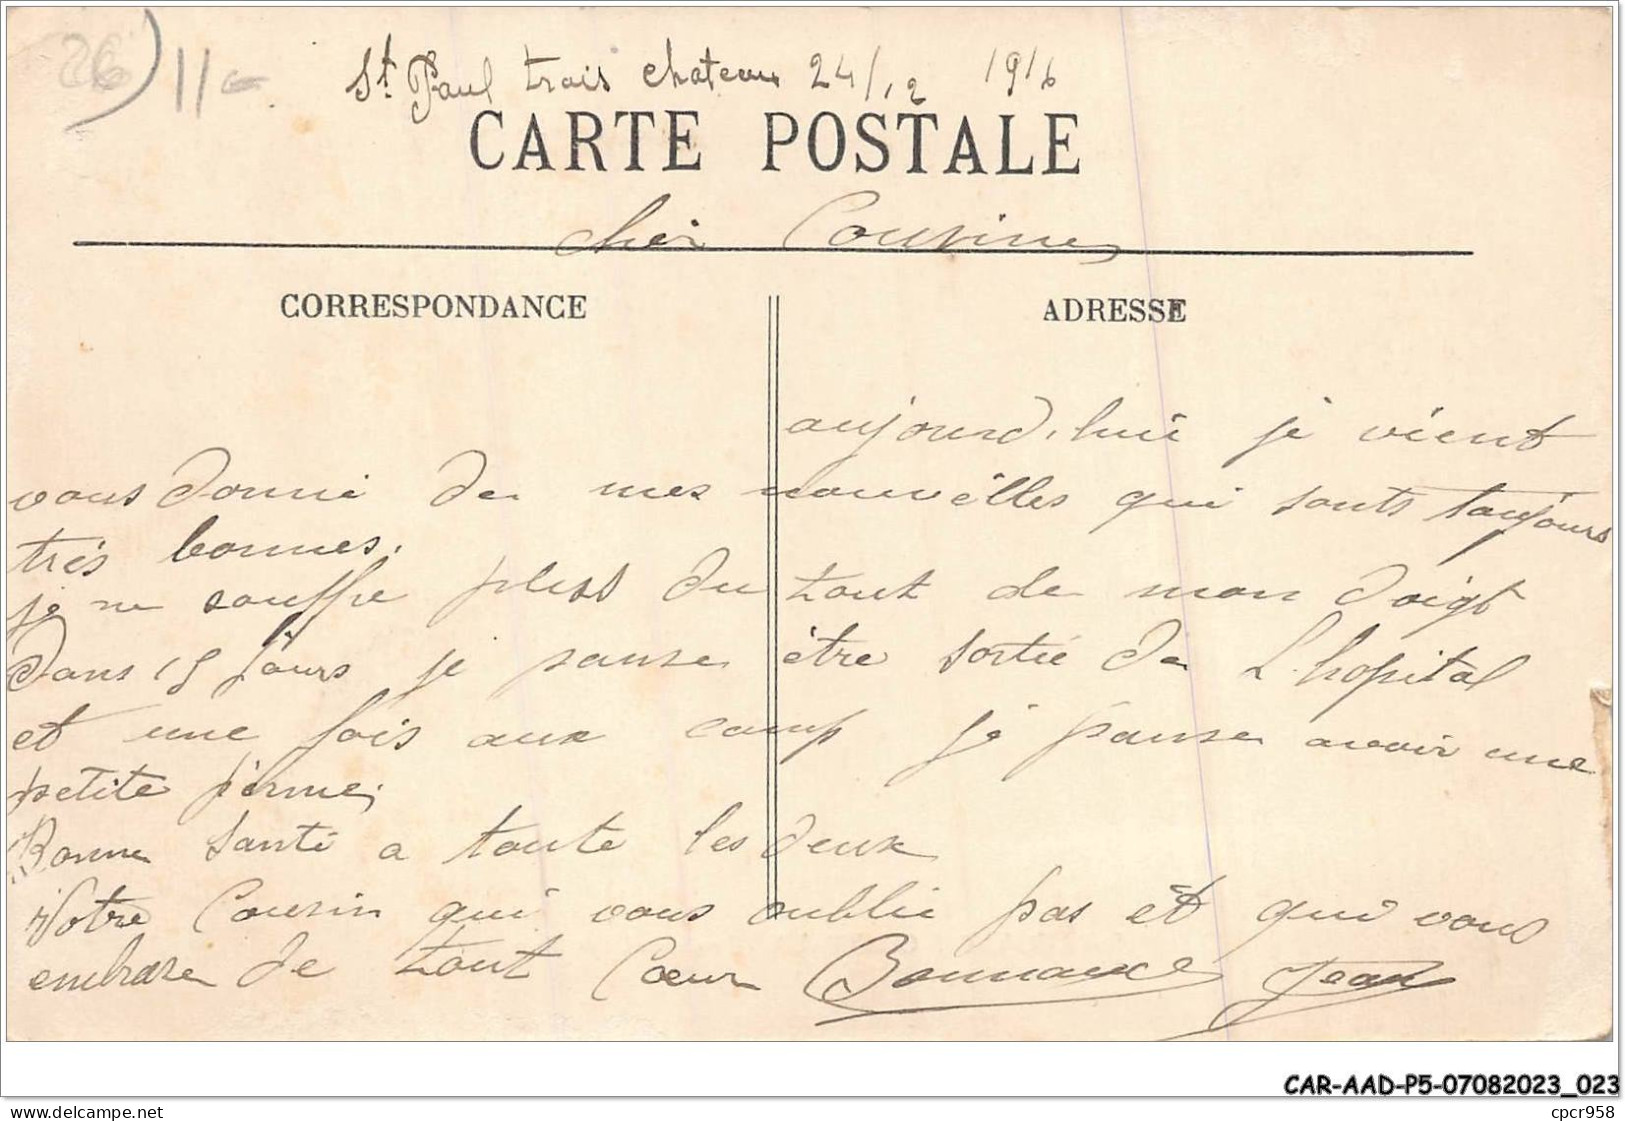 26) 11-
St. Paul trois chateau 24/12 1916
CARTE POSTALE
cher Cousine
CORRESPONDANCE
ADRESSE
aujourd.hui je vient
vous donné de mes nouvélles qui sonts toujours
très bonnes.
je ne souffre pluss du tout de mon doigt
dans 15 jours je panse être sortie de L.hopital
et une fois aux camp je panse avoir une
petite pérme,
Bonne santé a toute les deux
Votre Cousin qui vous oublie pas et qui vous
embrase de tout Cœur Jean
CAR-AAD-P5-07082023_023
cpcr958